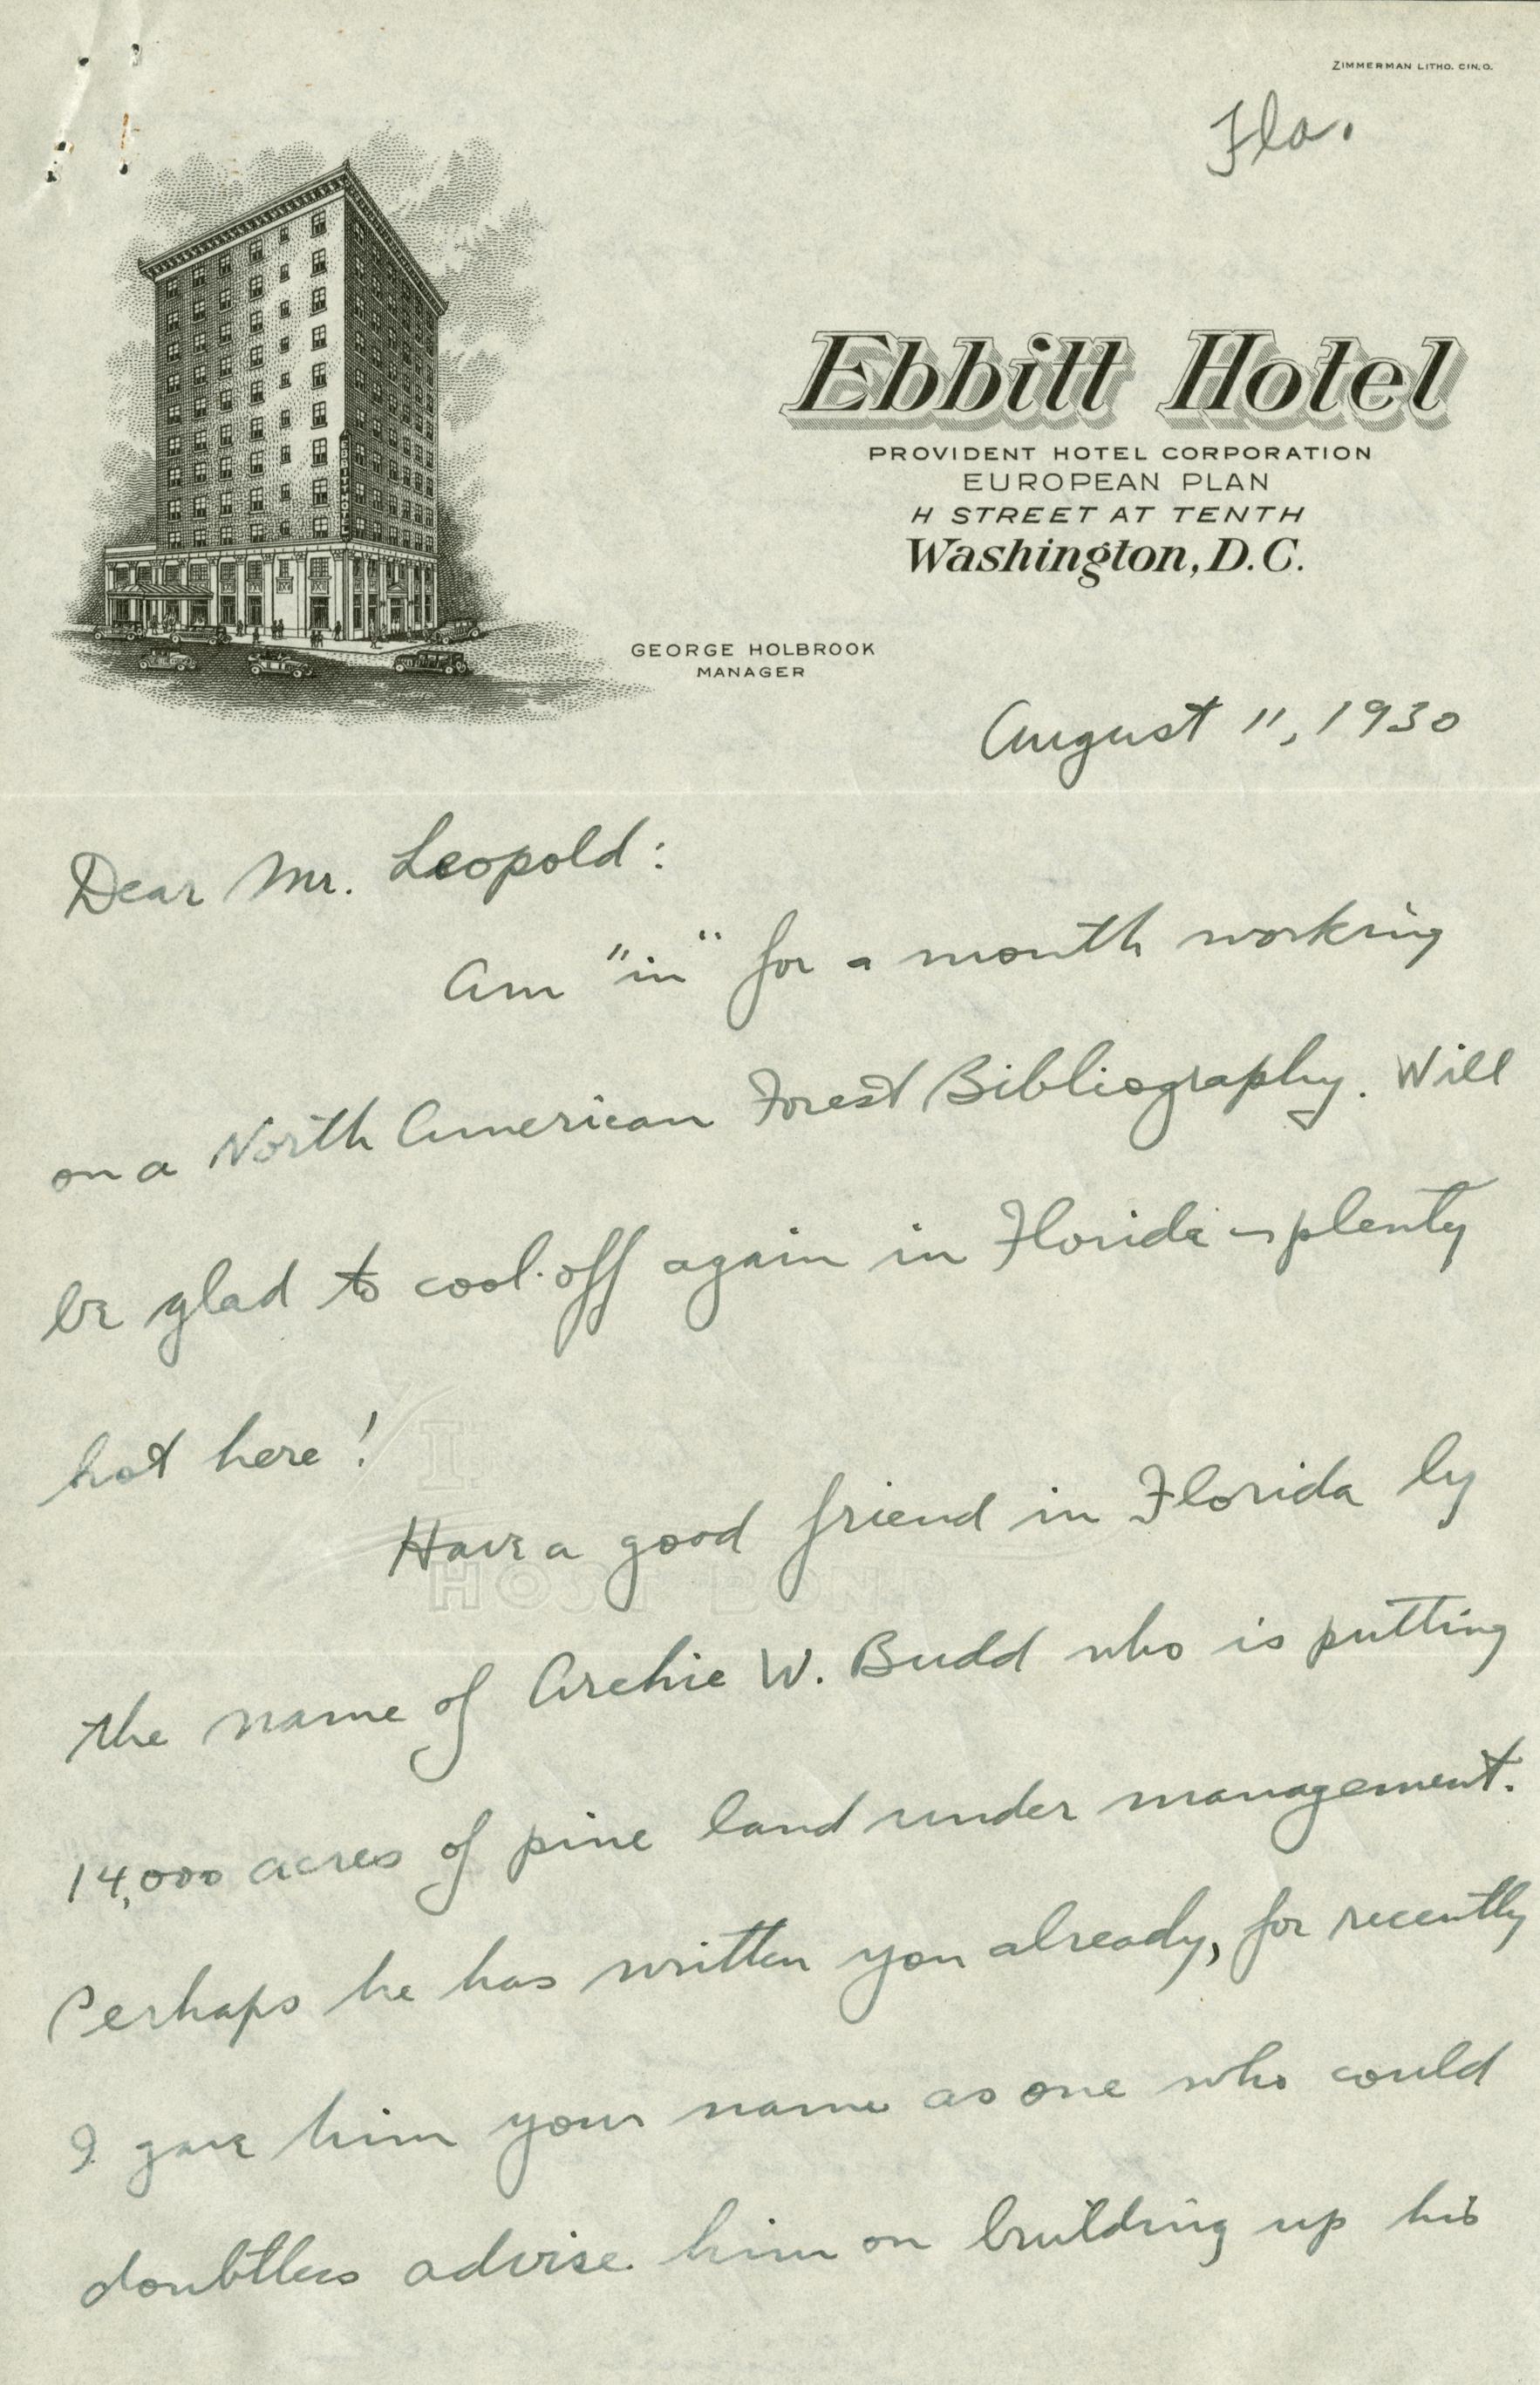 ZIMMERMAN LITHO. CIN. O.
Fla.
Ebbitt Hotel
PROVIDENT HOTEL CORPORATION
EUROPEAN PLAN
H STREET AT TENTH
Washington, D.C.
EBBITT HOTEL
GEORGE HOLBROOK
MANAGER
August 11, 1930
Dear Mr. Leopold:
Am "in" for a month working
on a North American Forest Bibliography. Will
be glad to cool off again in Florida - plenty
hot here!
Have a good friend in Florida by
the name of Archie W. Budd who is putting
14,000 acres of pine land under management.
Perhaps he has written you already, for recently
I gave him your name as one who could
doubtless advise him on building up his
HOST BOND